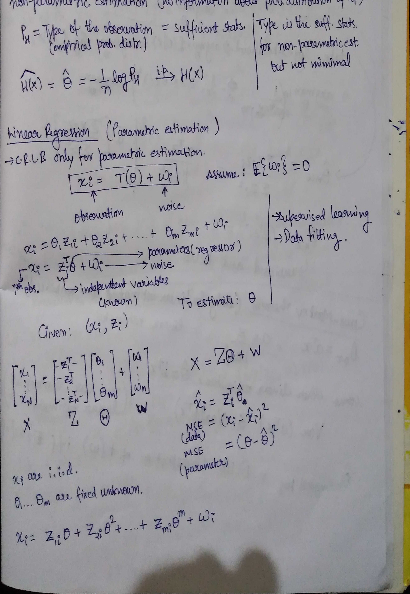 non-parametric estimation (no information about prob. distribution of
P̂_x = Type of the observation = sufficient stats.
(empirical prob. distr.)
Type is the suff. stats.
for non-parametric est.
but not minimal
Ĥ(x) = θ̂ = -1/n log P_x i.p.→ H(x)
Linear Regression (Parametric estimation)
→ C.R.L.B only for parametric estimation.
x_i = T(θ) + w_i
Assume: E{w_i} = 0
observation noise
x_i = θ_1 z_1i + θ_2 z_2i + ..... + θ_m z_mi + w_i
→ parameters (regressor)
x_i = z_i^T θ + w_i → noise
i^th obs. → independent variables
(known)
→ Supervised learning
→ Data fitting.
To estimate: θ
Given: (x_i, z_i)
[x_1 ⋮ x_n] = [-z_1^T- -z_2^T- ⋮ -z_n^T-] [θ_1 ⋮ θ_m] + [w_1 ⋮ w_n]
X Z Θ W
X = Zθ + W
x̂_i = z_i^T θ̂
MSE = (x_i - x̂_i)^2
(data)
MSE = (θ - θ̂)^2
(parameter)
x_i are i.i.d.
θ_1 ... θ_m are fixed unknown.
x_i = z_1i θ + z_2i θ^2 + ... + z_mi θ^m + w_i